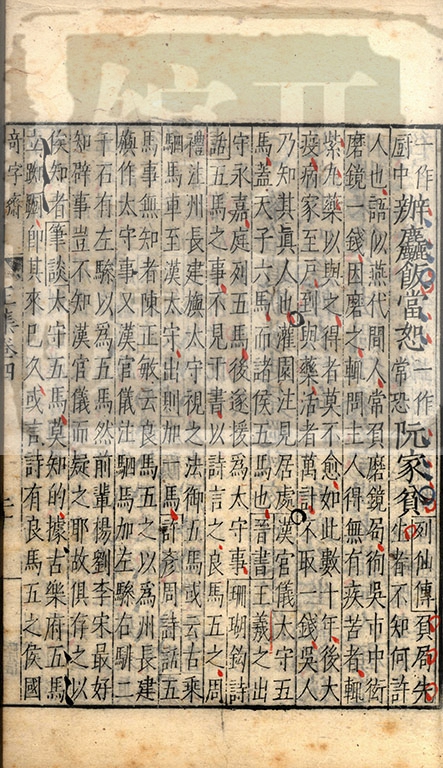 一作廚中 辦麤飯當恕 一作常恐 阮家貧 列仙傳負局先生者不知何許
人也語似燕代間人常負磨鏡局徇吳市中衒
磨鏡一錢因磨之輒問主人得無有疾苦者輒
紫丸藥以與之得者莫不愈如此數十年後大
疫病家至戶到與藥活者萬計不取一錢吳人
乃知其真人也灌園注見居處漢官儀太守五
馬蓋天子六馬而諸侯五馬也晉書王羲之出
守永嘉庭列五馬後遂援為太守事珊瑚鈎詩
話五馬之事不見于書以詩言之良馬五之周
禮注州長建旟太守視之法御五馬或云古乘
駟馬車至漢太守出則加一馬許彥周詩話五
馬事無知者陳正敏云良馬五之以為州長建
旟作太守事又漢官儀注駟馬加左驂右騑二
千石有左驂以為五馬然前輩楊劉李宋最好
知辟事豈不知漢官儀而疑之耶故俱存之以
俟知者筆談太守五馬莫知的據古樂府五馬
立踟躕則其來已久或言詩有良馬五之侯國
奇字齋 集卷四